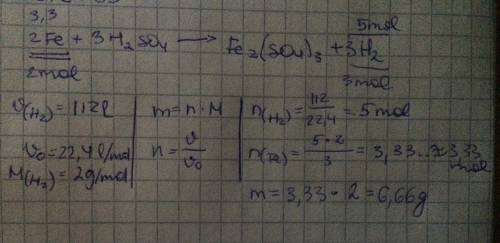 3,3 5mol
2Fe + 3H₂SO₄ → Fe₂(SO₄)₃ + 3H₂
2mol 3mol
v(H₂) = 112l
v₀ = 22,4l/mol
M(H₂) = 2g/mol
m = n · M
n = v/v₀
n(H₂) = 112/22,4 = 5mol
n(Fe) = 5·2/3 = 3,33..≈3,33 mol
m = 3,33 · 2 = 6,66g